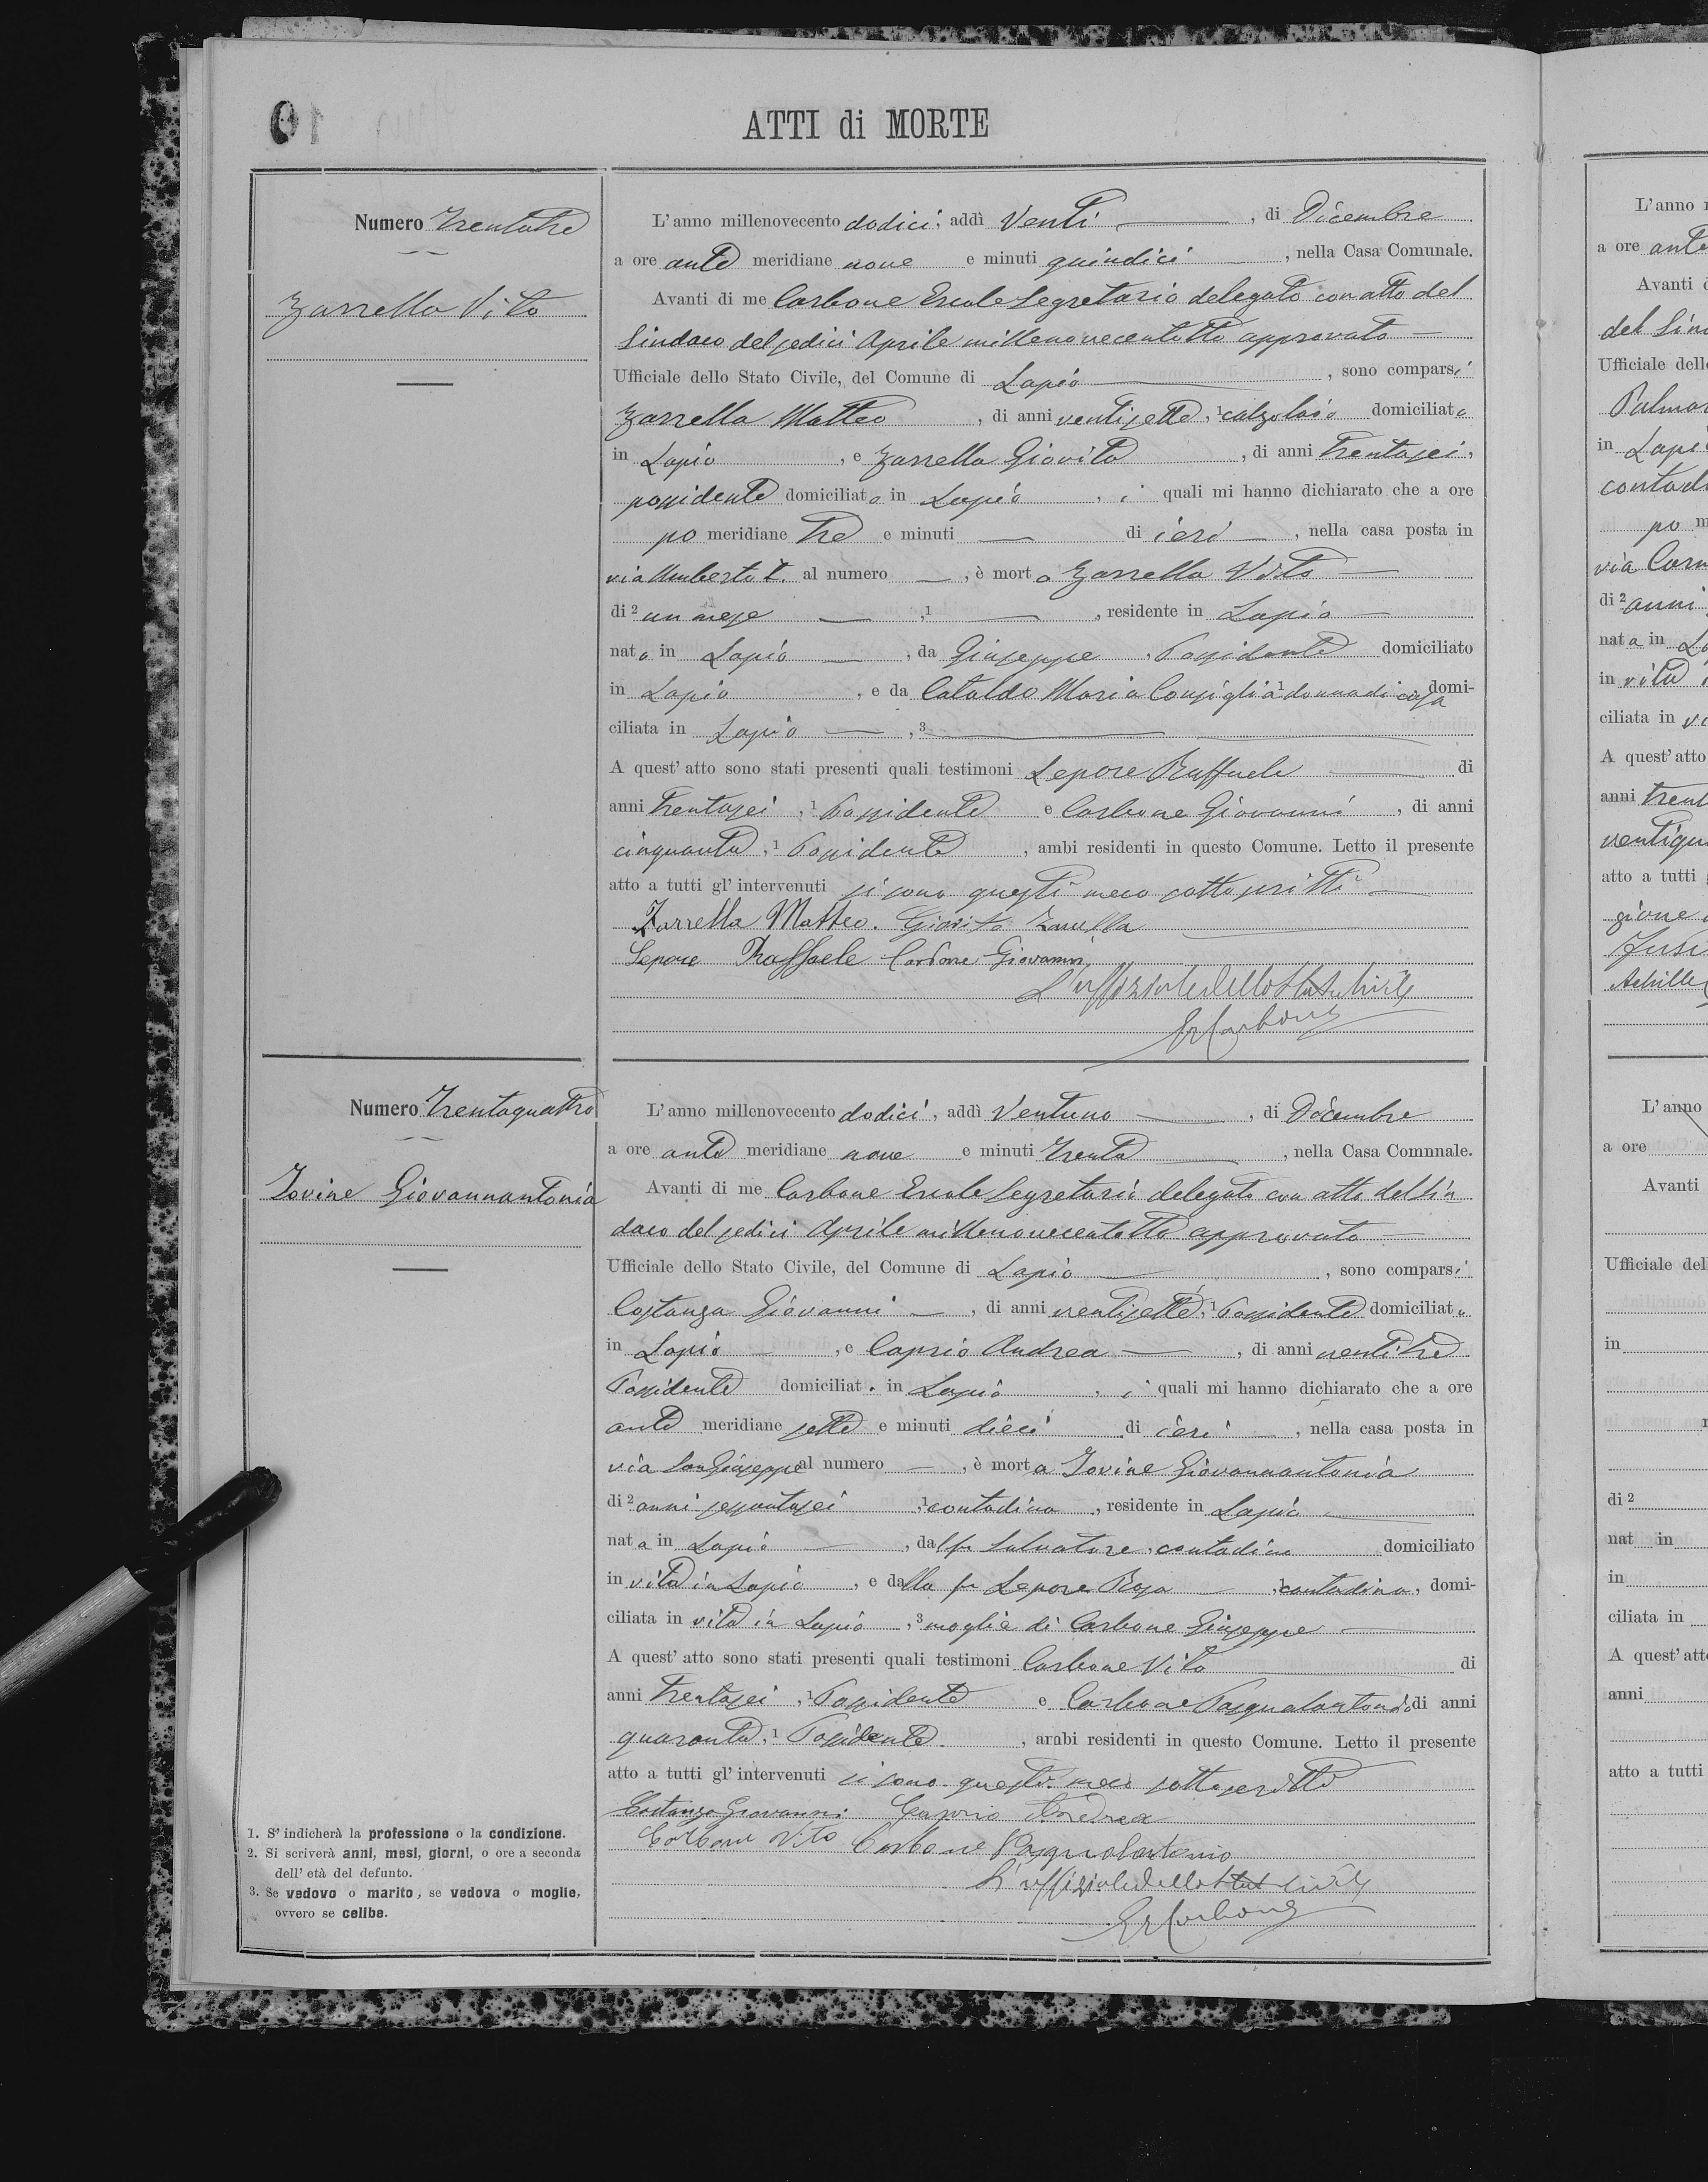 ATTI di MORTE
Numero Trentatre
Zarrella Vito
L'anno millenovecento dodici, addì Venti, di Dicembre
a ore ante meridiane nove e minuti quindici, nella Casa Comunale.
Avanti di me Carbone Ercole Segretario delegato con atto del
Sindaco del sedici Aprile millenovecentotto approvato
Ufficiale dello Stato Civile, del Comune di Lapio, sono comparsi
Zarrella Matteo, di anni ventisette, 1 calzolaio domiciliato
in Lapio, e Zarrella Giovito, di anni trentasei,
possidente domiciliato in Lapio, i quali mi hanno dichiarato che a ore
po meridiane tre e minuti — di ieri, nella casa posta in
via Umberto I. al numero —, è morto Zarrella Vito
di 2 un mese, 1 —, residente in Lapio
nato in Lapio, da Giuseppe, Possidente domiciliato
in Lapio, e da Cataldo Maria Consiglia 1 donna di casa domi-
ciliata in Lapio, 3
A quest' atto sono stati presenti quali testimoni Lepore Raffaele di
anni trentasei, 1 Possidente e Carbone Giovanni, di anni
cinquanta, 1 Possidente, ambi residenti in questo Comune. Letto il presente
atto a tutti gl' intervenuti si sono questi meco sottoscritti
Zarrella Matteo. Giovito Zarrella
Lepore Raffaele Carbone Giovanni
L'uffiziale dello Stato Civile
Er Carbone
Numero Trentaquattro
Iovine Giovannantonia
L'anno millenovecento dodici, addì Ventuno, di Dicembre
a ore ante meridiane nove e minuti trenta, nella Casa Comnnale.
Avanti di me Carbone Ercole Segretario delegato con atto del Sin
daco del sedici Aprile millenovecentotto approvato
Ufficiale dello Stato Civile, del Comune di Lapio, sono comparsi
Costanza Giovanni, di anni ventisette, 1 Possidente domiciliato
in Lapio, e Caprio Andrea, di anni ventitre
Possidente domiciliat. in Lapio, i quali mi hanno dichiarato che a ore
ante meridiane sette e minuti dieci di ieri, nella casa posta in
via San Giuseppe al numero —, è morta Iovine Giovannantonia
di 2 anni sessantasei, 1 contadina, residente in Lapio
nata in Lapio, dal fu Salvatore, contadino domiciliato
in vita in Lapio, e dalla fu Lepore Rosa, 1 contadina, domi-
ciliata in vita in Lapio, 3 moglie di Carbone Giuseppe
A quest' atto sono stati presenti quali testimoni Carbone Vito di
anni trentasei, 1 Possidente e Carbone Pasqualantonio di anni
quaranta, 1 Possidente, ambi residenti in questo Comune. Letto il presente
atto a tutti gl' intervenuti si sono questi meco sottoscritti
Costanza Giovanni Caprio Andrea
Carbone Vito Carbone Pasqualantonio
L'uffiziale dello Stato Civile
Er Carbone
1. S' indicherà la professione o la condizione.
2. Si scriverà anni, mesi, giorni, o ore a seconda
dell' età del defunto.
3. Se vedovo o marito, se vedova o moglie,
ovvero se celibe.
L'anno
a ore ante
Avanti
del Sin
Ufficiale dell
in Lapi
contad
po
via
di 2 anni
nata in
in vita
ciliata in
A quest' atto
anni trent
ventiqu
atto a tutti
Achille
L'anno
a ore
Avanti
Ufficiale del
in
di 2
nat in
in
ciliata in
A quest' att
anni
atto a tutti